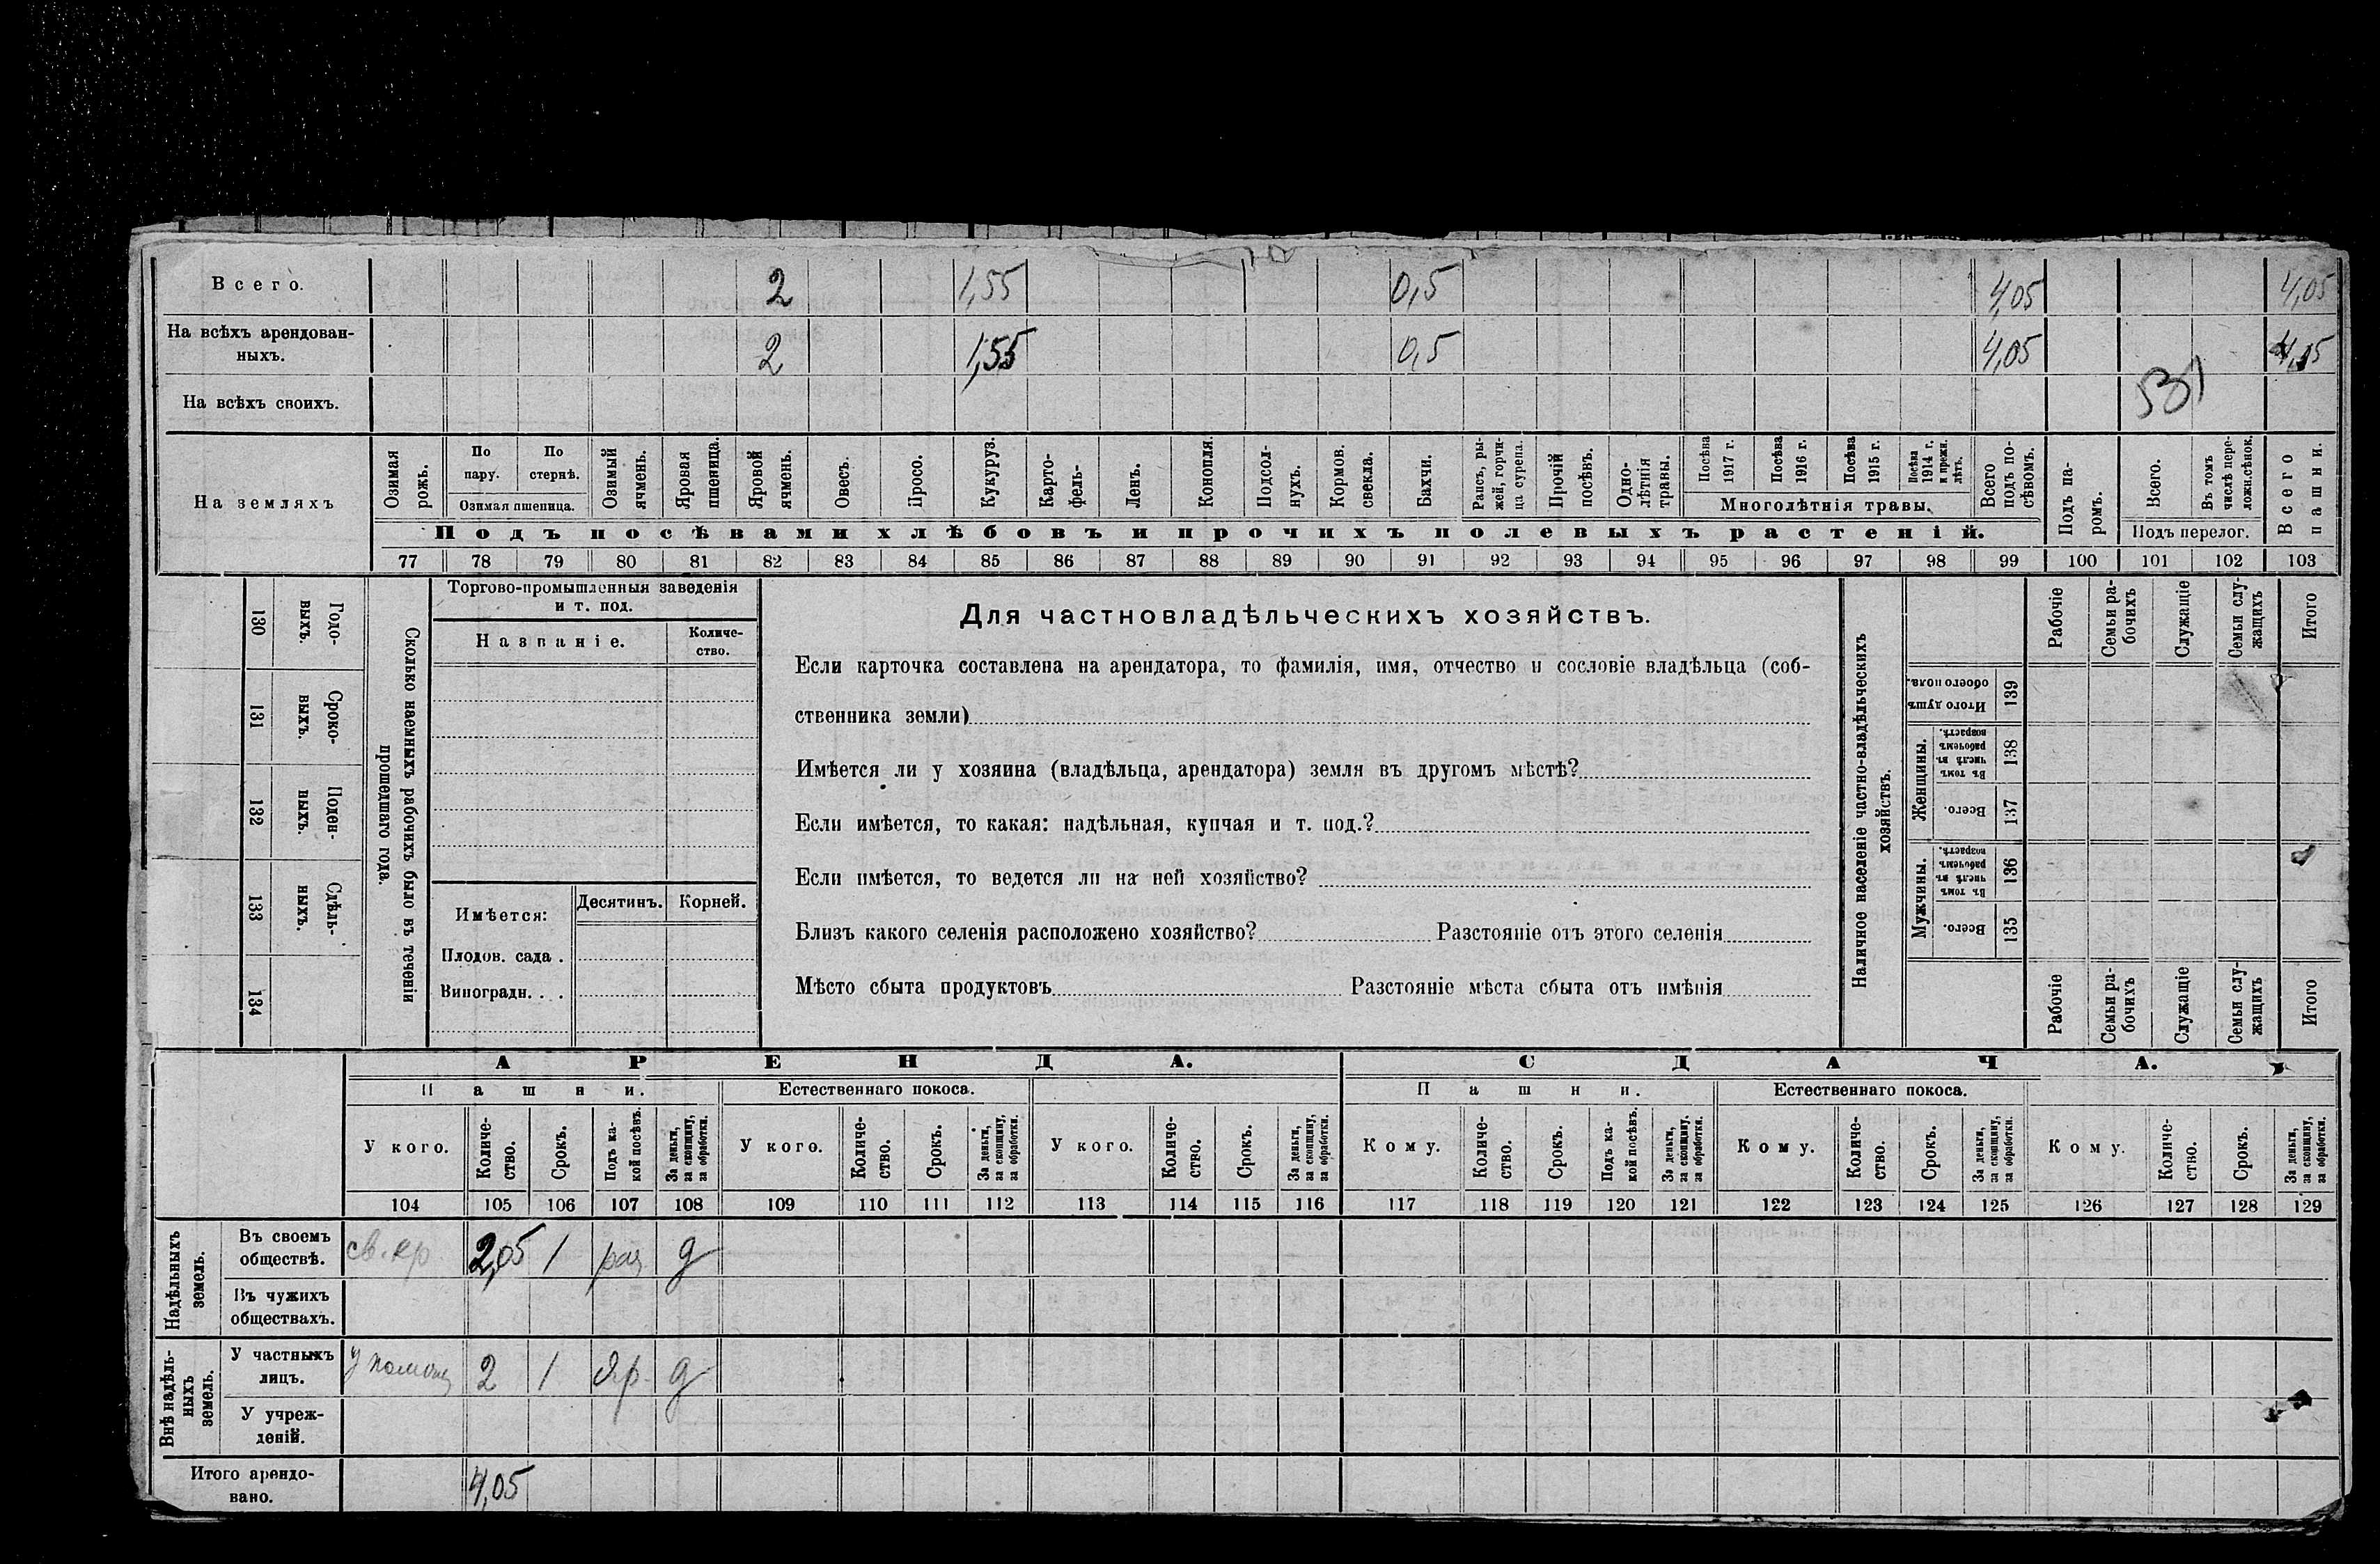 Всего. 2 1,55 0,5 4,05 4,05
На всѣхъ арендован-
ныхъ. 2 1,55 0,5 4,05 4,05
531
На всѣхъ своихъ.
На земляхъ
Озимая рожь.
По пару.
По стернѣ.
Озимая пшеница.
Озимый ячмень.
Яровая пшеница.
Яровой ячмень.
Овесъ.
Просо.
Кукуруз.
Карто-
фель-
Ленъ.
Конопля.
Подсол-
нухъ.
Кормов. свекла.
Бахчи.
Рапсъ, ры-
жей, горчи-
ца сурепа.
Прочій посѣвъ.
Одно-
лѣтнія травы.
Посѣва 1917 г.
Посѣва 1916 г.
Посѣва 1915 г.
Посѣва 1914 г. и прежн. лѣтъ.
Многолѣтнія травы.
Всего подъ по-
сѣвомъ.
Подъ па-
ромъ.
Всего.
Въ томъ числѣ пере-
ложн.сѣнок.
Подъ перелог.
Всего пашни.
Подъ посѣвами хлѣбовъ и прочихъ полевыхъ растеній.
77 78 79 80 81 82 83 84 85 86 87 88 89 90 91 92 93 94 95 96 97 98 99 100 101 102 103
130 Годо-
выхъ.
131 Сроко-
выхъ.
132 Поден-
ныхъ.
133 Сдѣль-
ныхъ.
134
Сколько наемныхъ рабочихъ было въ теченіи
прошедшаго года.
Торгово-промышленныя заведенія
и т. под.
Названіе.
Количе-
ство.
Имѣется:
Десятинъ. Корней.
Плодов. сада .
Виноградн. . .
Для частновладѣльческихъ хозяйствъ.
Если карточка составлена на арендатора, то фамилія, имя, отчество и сословіе владѣльца (соб-
ственника земли)
Имѣется ли у хозяина (владѣльца, арендатора) земля въ другомъ мѣстѣ?
Если имѣется, то какая: надѣльная, купчая и т. под.?
Если имѣется, то ведется ли на ней хозяйство?
Близъ какого селенія расположено хозяйство? Разстояніе отъ этого селенія
Мѣсто сбыта продуктовъ Разстояніе мѣста сбыта отъ имѣнія
Наличное населеніе частно-владѣльческихъ
хозяйствъ.
Рабочіе
Семьи ра-
бочихъ
Служащіе
Семьи слу-
жащихъ
Итого
Итого душъ
обоего пола.
139
Женщины.
Въ томъ числѣ въ рабочемъ возрастѣ.
138
Всего.
137
Мужчины.
Въ томъ числѣ въ рабочемъ возрастѣ.
136
Всего.
135
Рабочіе
Семьи ра-
бочихъ
Служащіе
Семьи слу-
жащихъ
Итого
АРЕНДА. СДАЧА.
Пашни. Естественнаго покоса. Пашни. Естественнаго покоса.
У кого.
Количе-
ство.
Срокъ.
Подъ ка-
кой посѣвъ.
За деньги,
за скопщину,
за обработки.
У кого.
Количе-
ство.
Срокъ.
За деньги,
за скопщину,
за обработки.
У кого.
Количе-
ство.
Срокъ.
За деньги,
за скопщину,
за обработки.
Кому.
Количе-
ство.
Срокъ.
Подъ ка-
кой посѣвъ.
За деньги,
за скопщину,
за обработки.
Кому.
Количе-
ство.
Срокъ.
За деньги,
за скопщину,
за обработки.
Кому.
Количе-
ство.
Срокъ.
За деньги,
за скопщину,
за обработки.
104 105 106 107 108 109 110 111 112 113 114 115 116 117 118 119 120 121 122 123 124 125 126 127 128 129
Надѣльныхъ
земель.
Въ своемъ
обществѣ. св. кр 2,05 1 раз д
Въ чужихъ
обществахъ.
Внѣ надѣль-
ныхъ
земель.
У частныхъ
лицъ. У помещ 2 1 яр. д
У учреж-
деній.
Итого арендо-
вано. 4,05